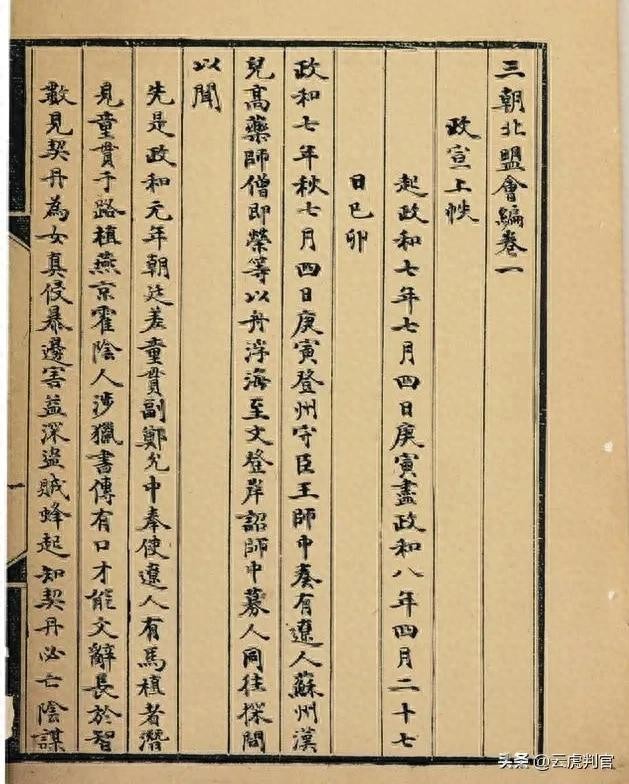 三朝北盟會編卷一
政宣上帙
起政和七年七月四日庚寅盡政和八年四月二十七
日己卯
政和七年秋七月四日庚寅登州守臣王師中奏有遼人蘇州漢
兒高藥師僧即榮等以舟浮海至文登岸詔師中募人同往探問
以聞
先是政和元年朝廷差童貫副鄭允中奉使遼人有馬植者潛
見童貫于路植燕京霍陰人涉獵書傳有口才能文辭長於智
數見契丹為女真侵暴邊害益深盜賊蜂起知契丹必亡陰謀
一
头条 @云虎判官